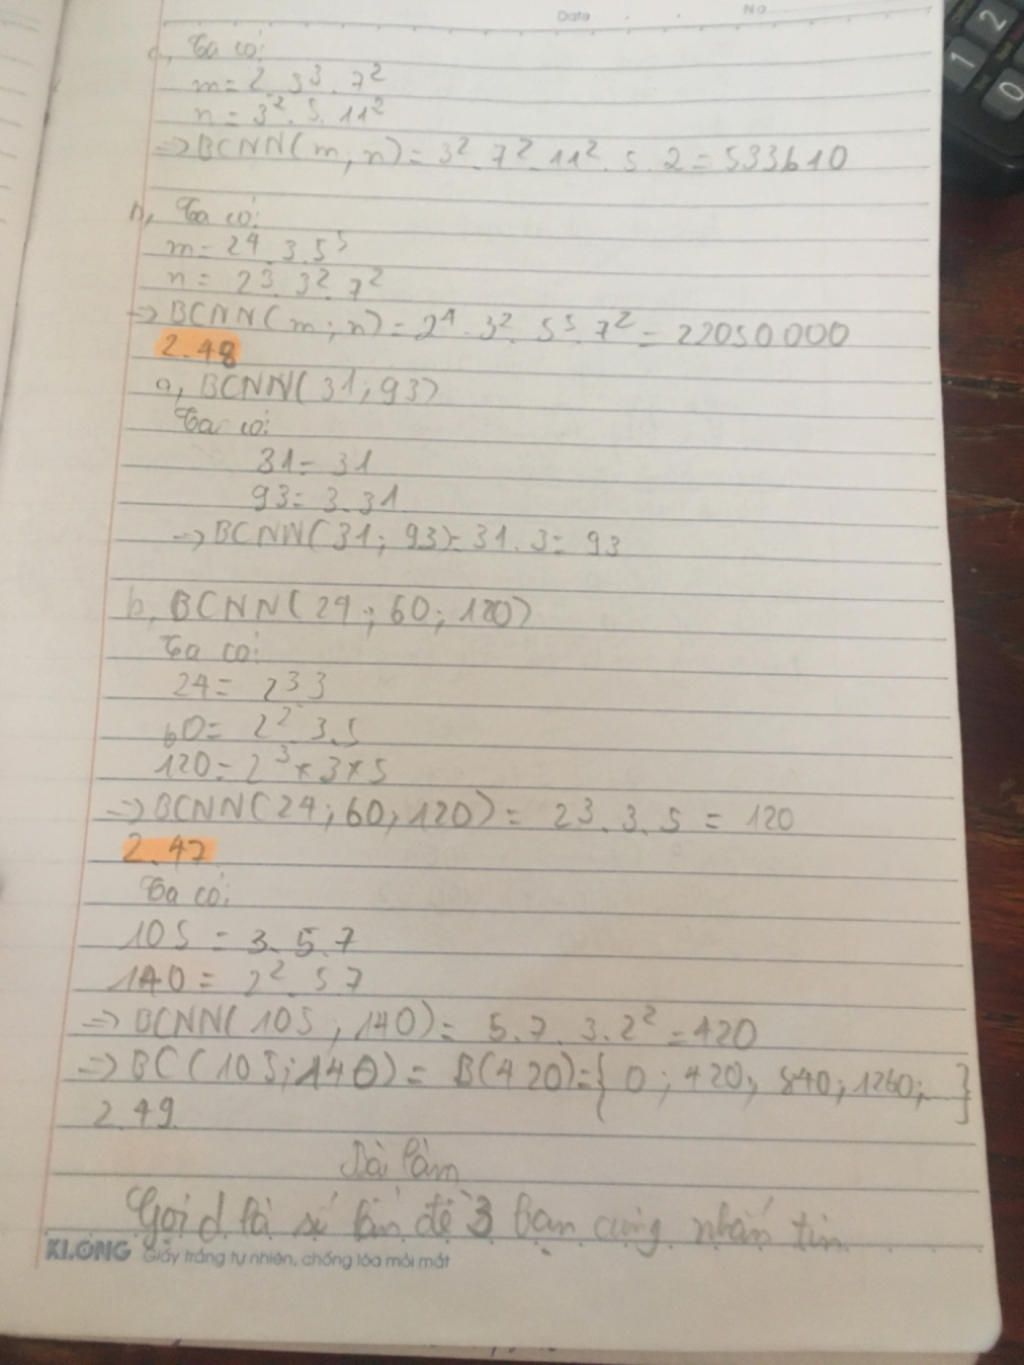 Date No
a, Ta có:
m = 2 . 3³ . 7²
n = 3² . 5 . 11²
=> BCNN(m; n) = 3² . 7² . 11² . 5 . 2 = 533610
b, Ta có:
m = 2⁴ . 3 . 5⁵
n = 2³ . 3² . 7²
=> BCNN(m; n) = 2⁴ . 3² . 5⁵ . 7² = 22050000
2.48
a, BCNN(31; 93)
Ta có:
31 = 31
93 = 3 . 31
=> BCNN(31; 93) = 31 . 3 = 93
b, BCNN(24; 60; 120)
Ta có:
24 = 2³ 3
60 = 2² . 3 . 5
120 = 2³ × 3 × 5
=> BCNN(24; 60; 120) = 2³ . 3 . 5 = 120
2.47
Ta có:
105 = 3 . 5 . 7
140 = 2² . 5 7
=> BCNN(105; 140) = 5 . 7 . 3 . 2² = 420
=> BC(105; 140) = B(420) = { 0 ; 420; 840; 1260; ... }
2.49
Bài làm
Gọi d là số lần để 3 bạn cùng nhắn tin
KLONG Giấy trắng tự nhiên, chống lóa mỏi mắt
2
1
0